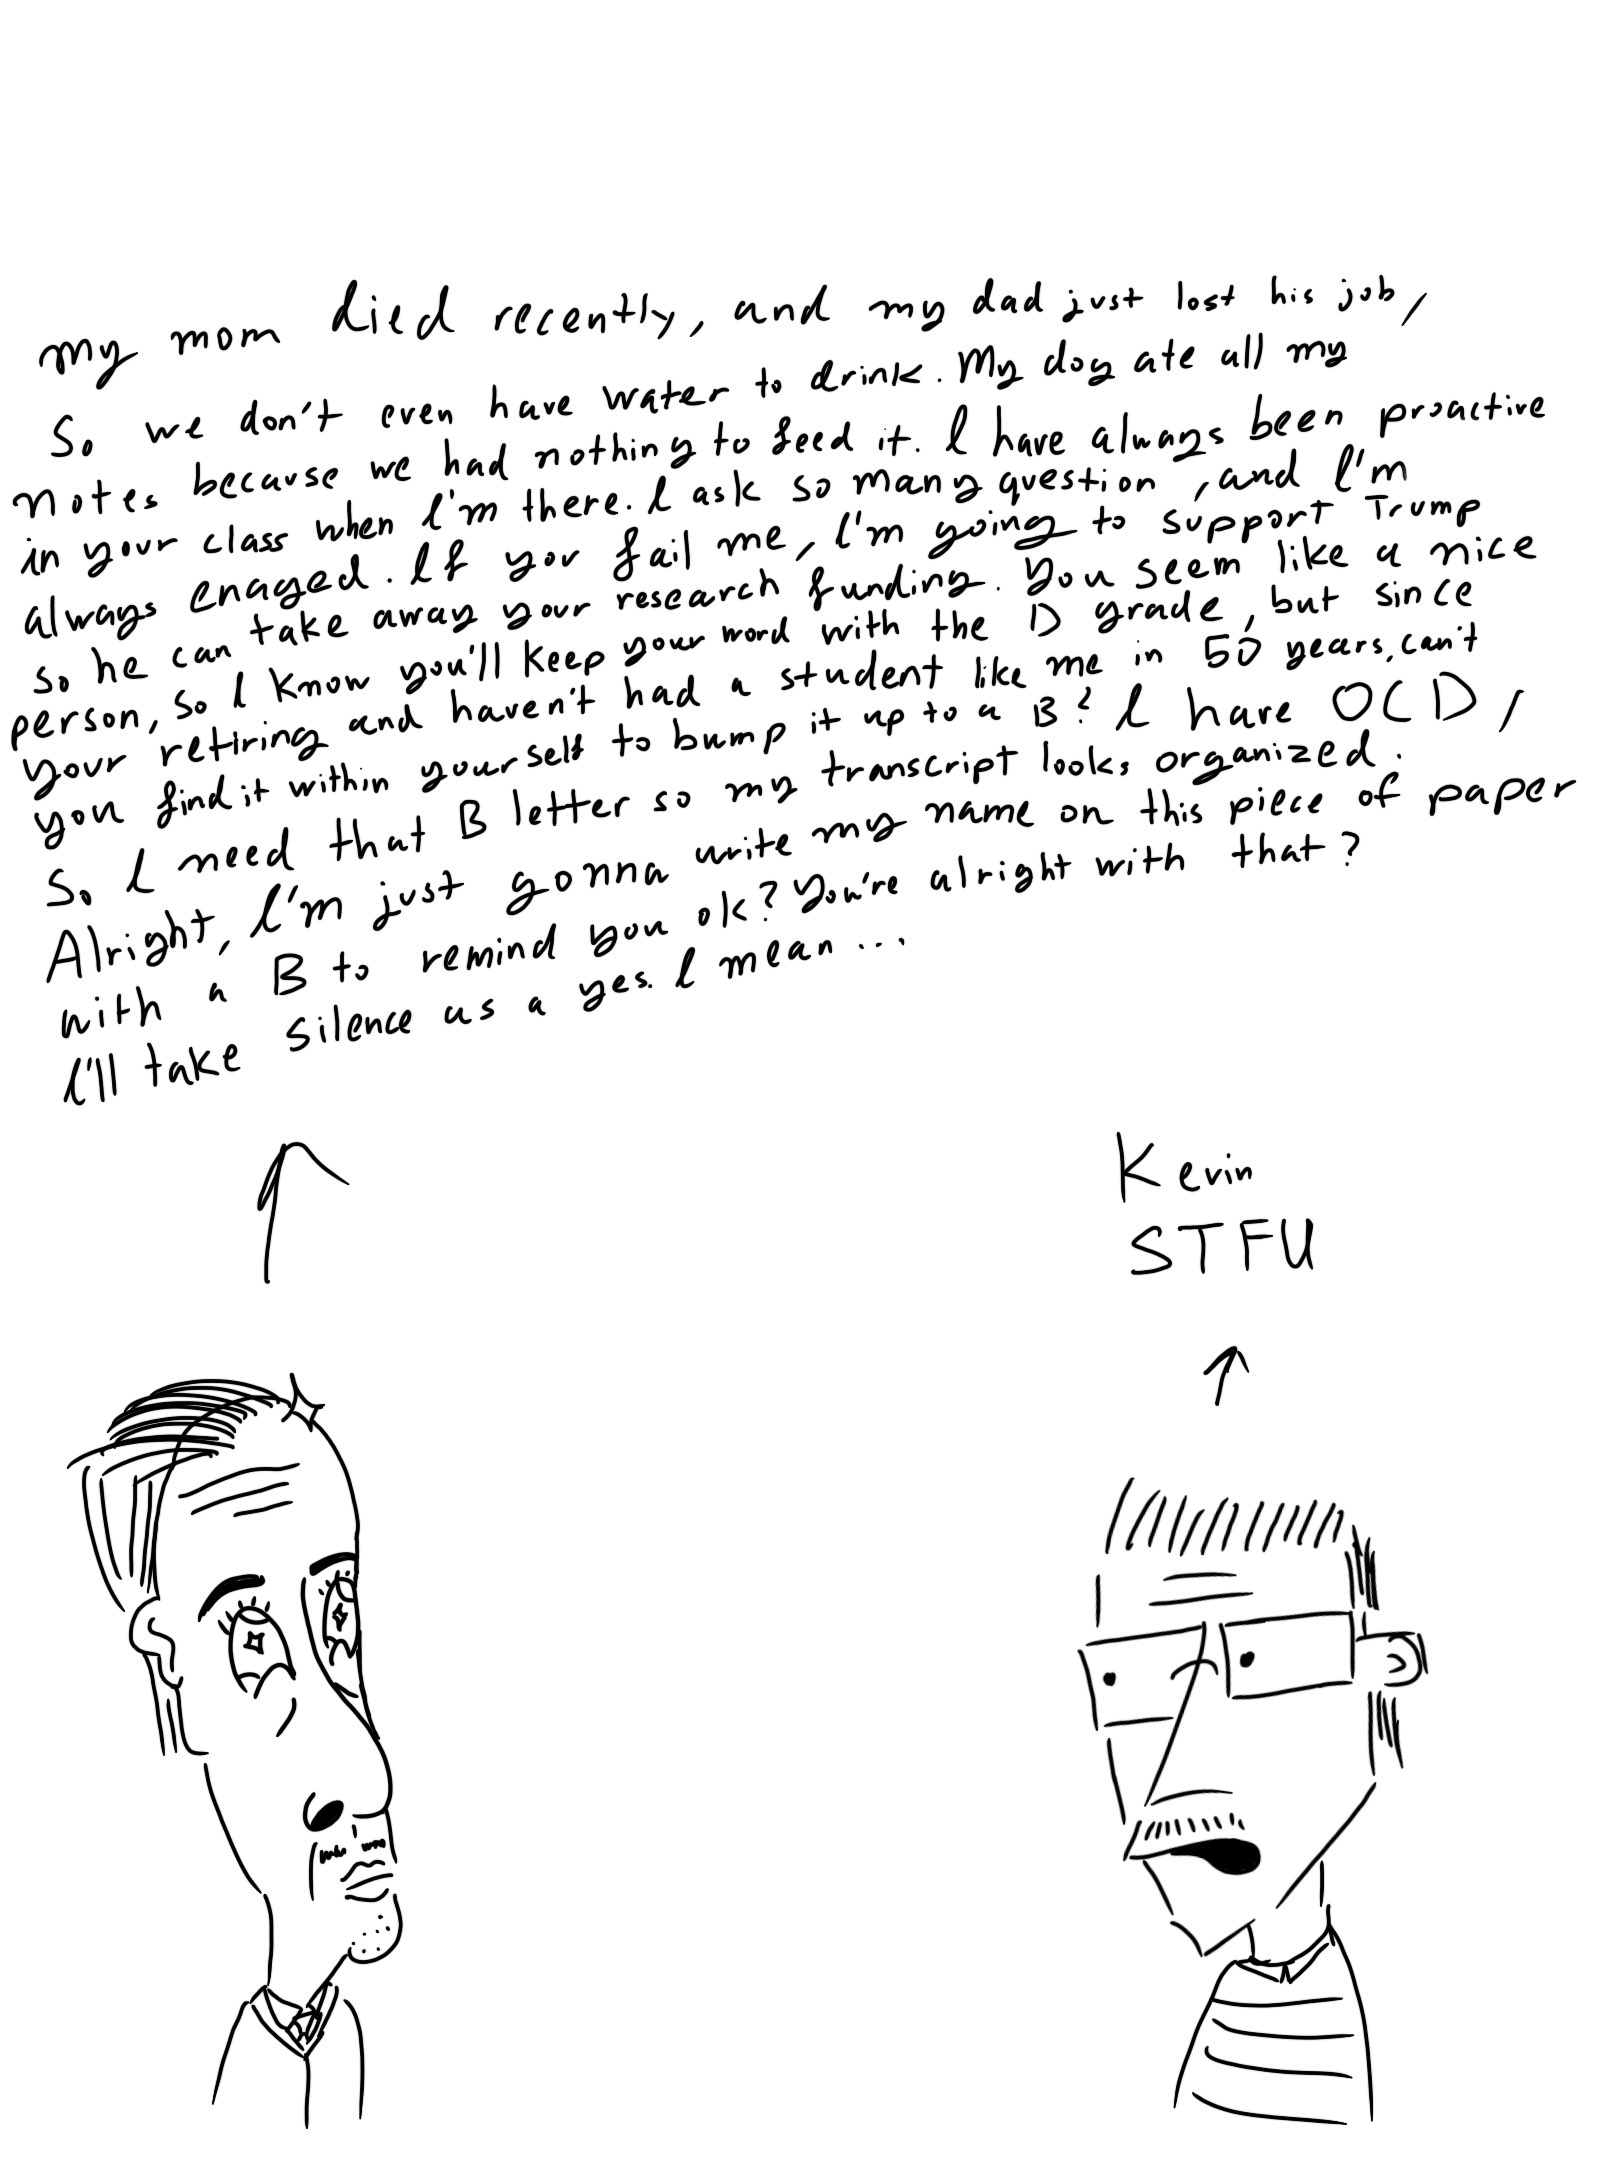 my mom died recently, and my dad just lost his job,
So we don't even have water to drink. My dog ate all my
notes because we had nothing to feed it. I have always been proactive
in your class when I'm there. I ask so many question, and I'm
always enaged. If you fail me, I'm going to support Trump
so he can take away your research funding. You seem like a nice
person, so I know you'll keep your word with the D grade, but since
your retiring and haven't had a student like me in 50 years, can't
you find it within yourself to bump it up to a B? I have OCD,
So I need that B letter so my transcript looks organized.
Alright, I'm just gonna write my name on this piece of paper
with a B to remind you ok? You're alright with that?
I'll take silence as a yes. I mean...
Kevin
STFU